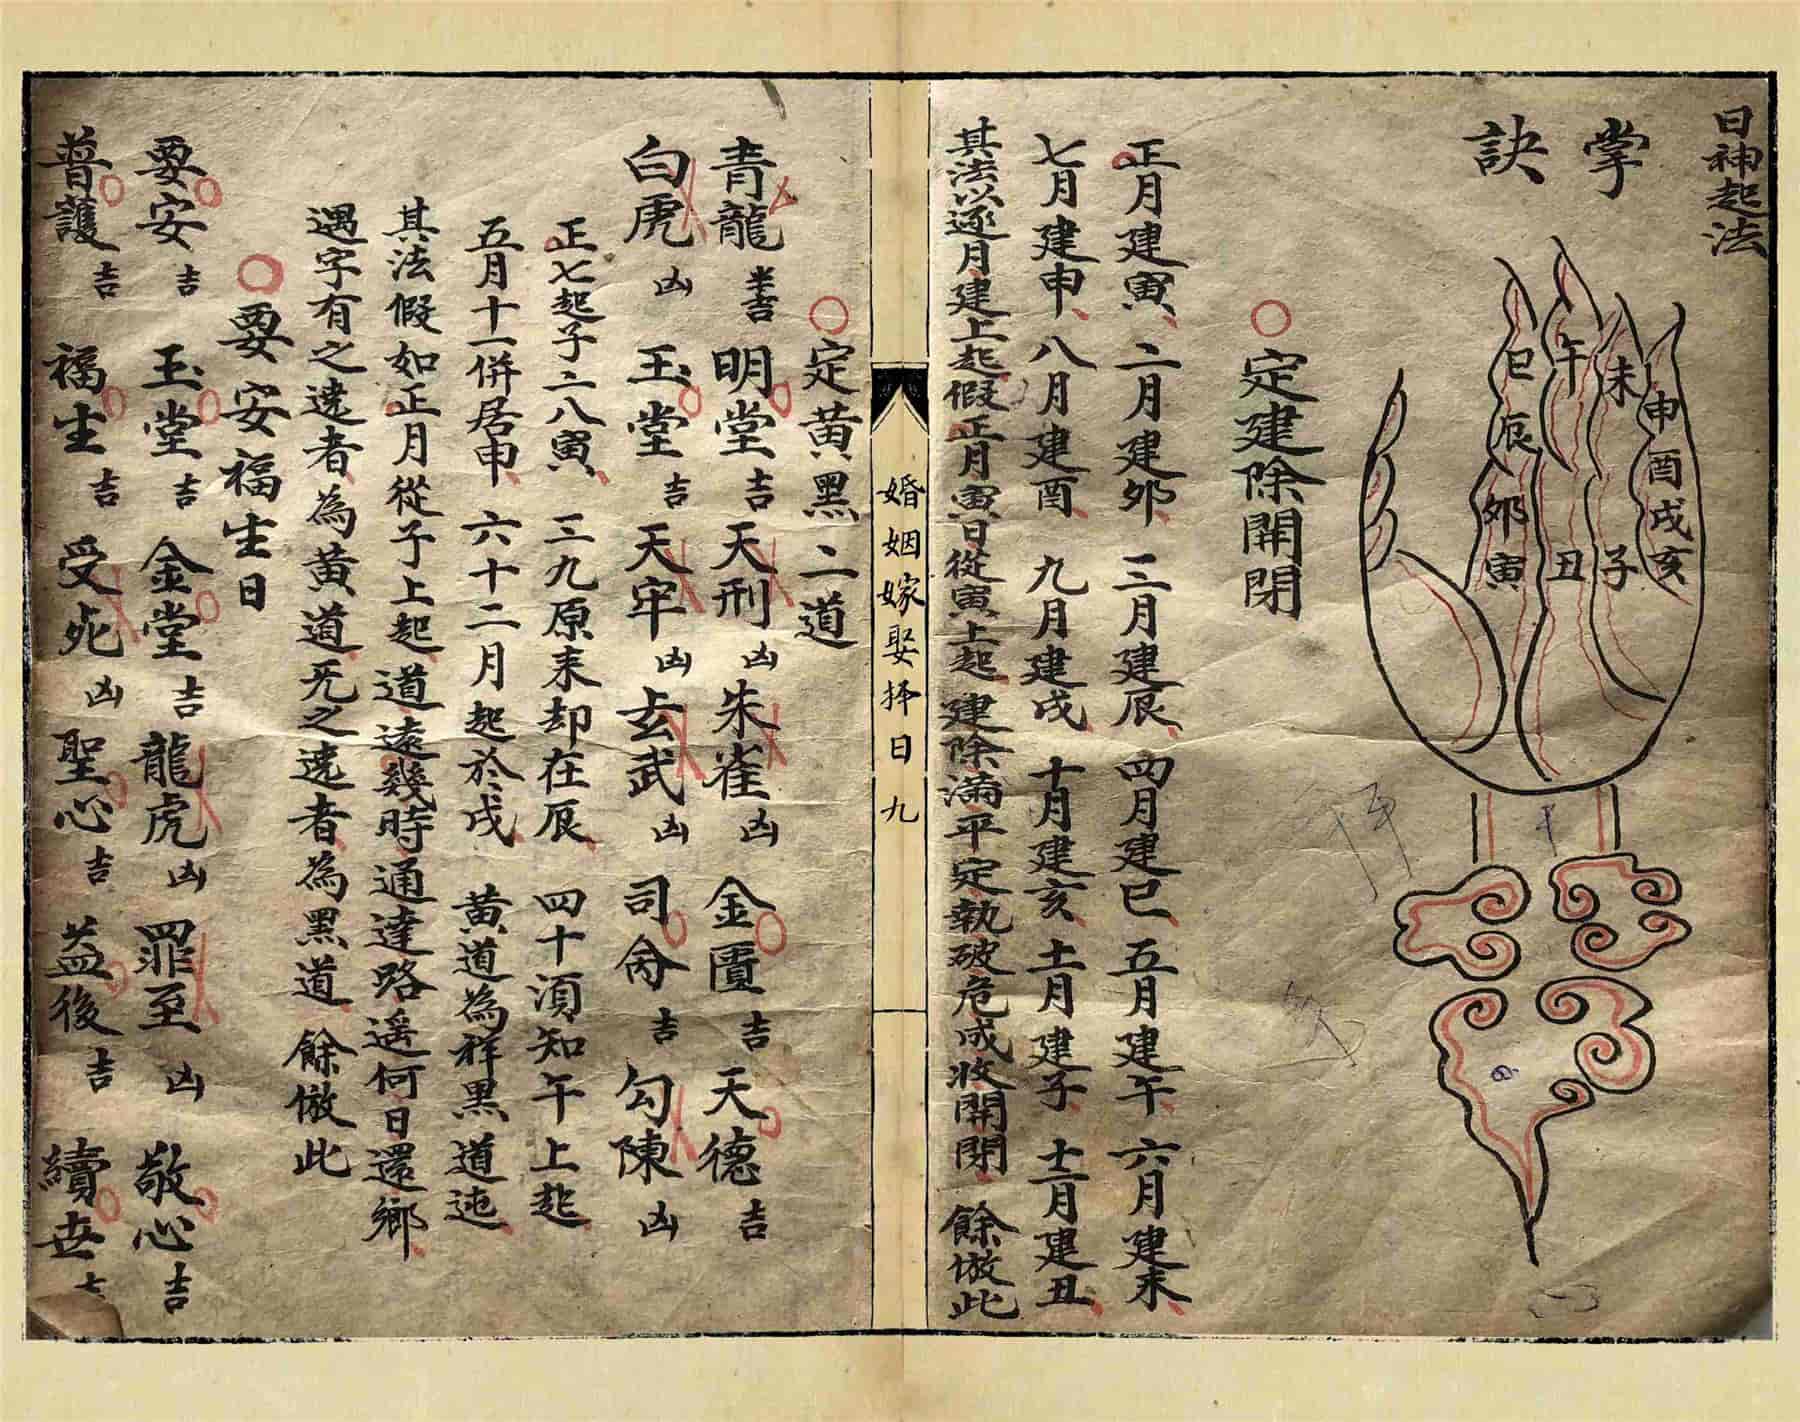 日神起法
掌訣
巳
午
未
申
辰
酉
卯
戌
寅
丑
子
亥
定建除開閉
正月建寅、二月建卯、三月建辰、四月建巳、五月建午、六月建未、
七月建申、八月建酉、九月建戌、十月建亥、十一月建子、十二月建丑、
其法以逐月建上起、假正月寅日從寅上起、建除滿平定執破危成收開閉、餘倣此
婚姻嫁娶择日九
定黃黑二道
青龍 半吉 明堂 吉 天刑 凶 朱雀 凶 金匱 吉 天德 吉
白虎 凶 玉堂 吉 天牢 凶 玄武 凶 司命 吉 勾陳 凶
正七起子二八寅、三九原來却在辰、四十須知午上起、
五月十一併居申、六十二月起於戌、黃道為祥黑道迍、
其法假如正月從子上起、道遠幾時通達路遥何日還鄉、
遇字有之遶者、為黃道、无之遶者、為黑道、餘倣此
要安福生日
要安 吉 玉堂 吉 金堂 吉 龍虎 凶 罪至 凶 敬心 吉
普護 吉 福生 吉 受死 凶 聖心 吉 益後 吉 續世 吉